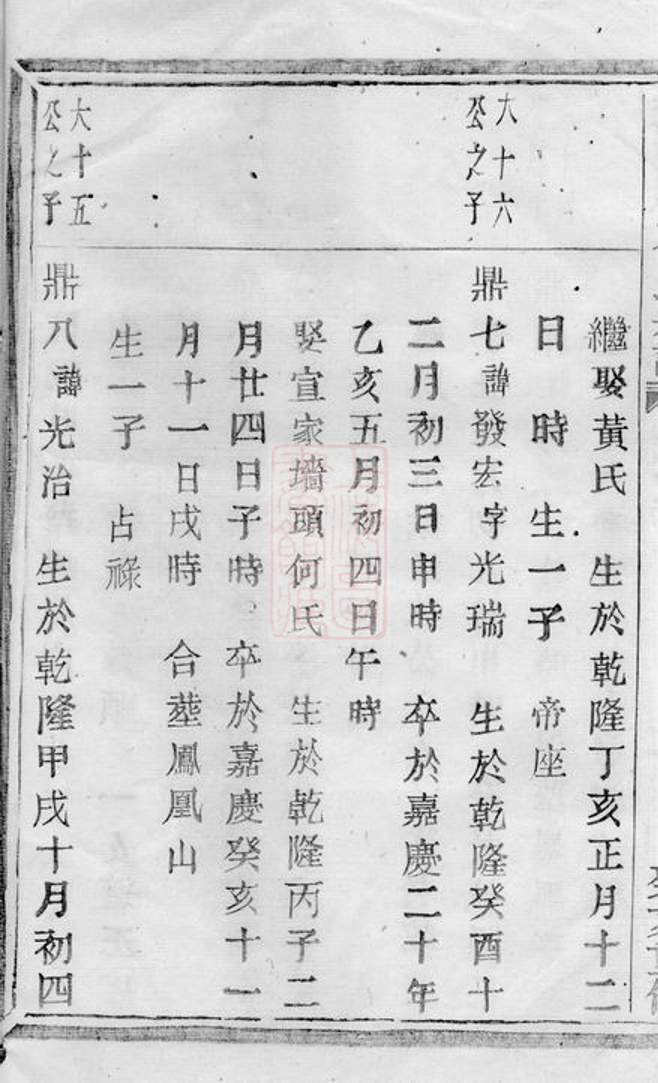 繼娶黃氏 生於乾隆丁亥正月十二
日 時 生一子 帝座
大十六
公之子
鼎七諱發宏字光瑞 生於乾隆癸酉十
二月初三日申時 卒於嘉慶二十年
乙亥五月初四日午時
娶宣家墻頭何氏 生於乾隆丙子二
月廿四日子時 卒於嘉慶癸亥十一
月十一日戌時 合塟鳳凰山
生一子 占祿
大十五
公之子
鼎八諱光治 生於乾隆甲戌十月初四